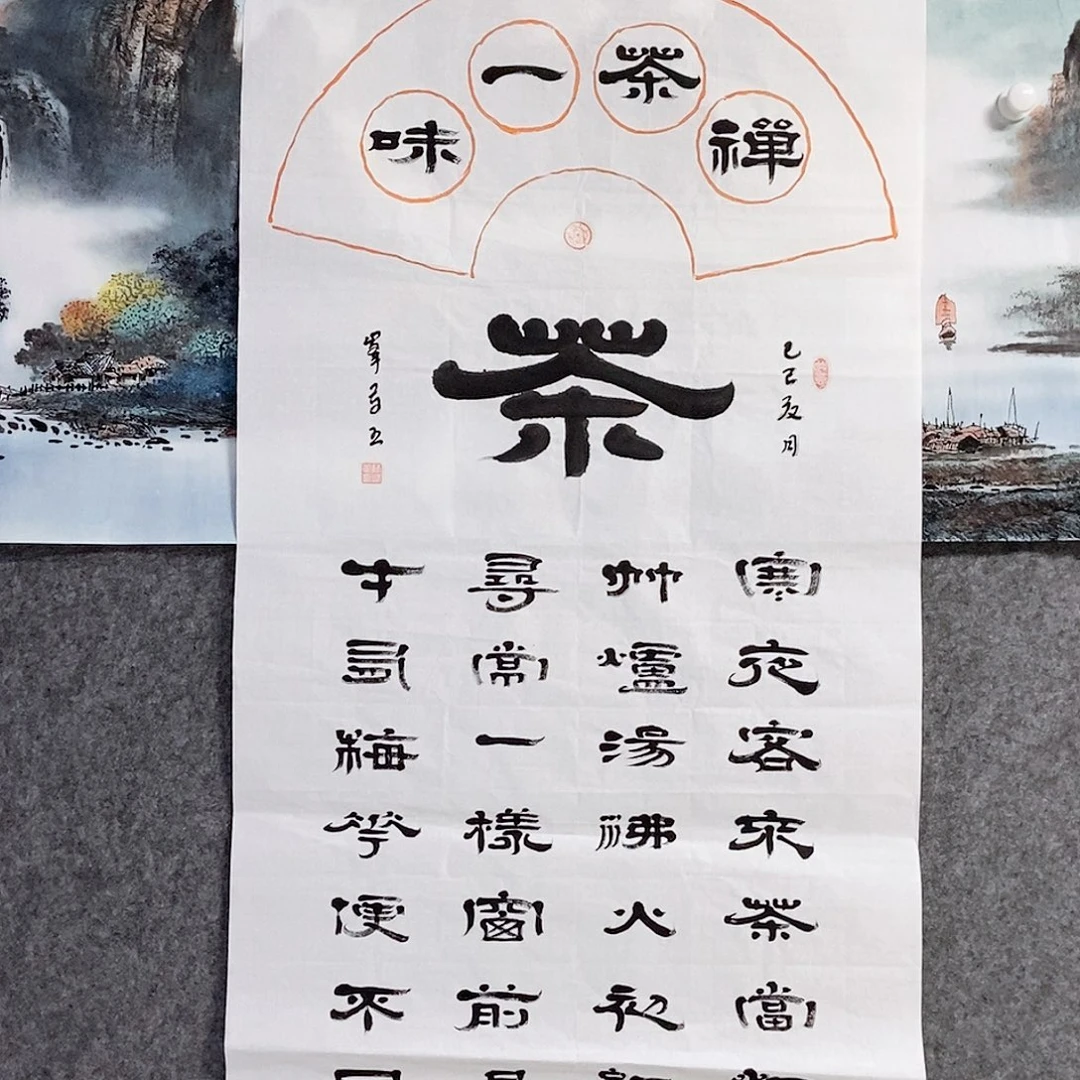 禪茶一味
茶
乙巳夏月
寒夜客來茶當
竹爐湯沸火初
尋常一樣窗前
才有梅花便不